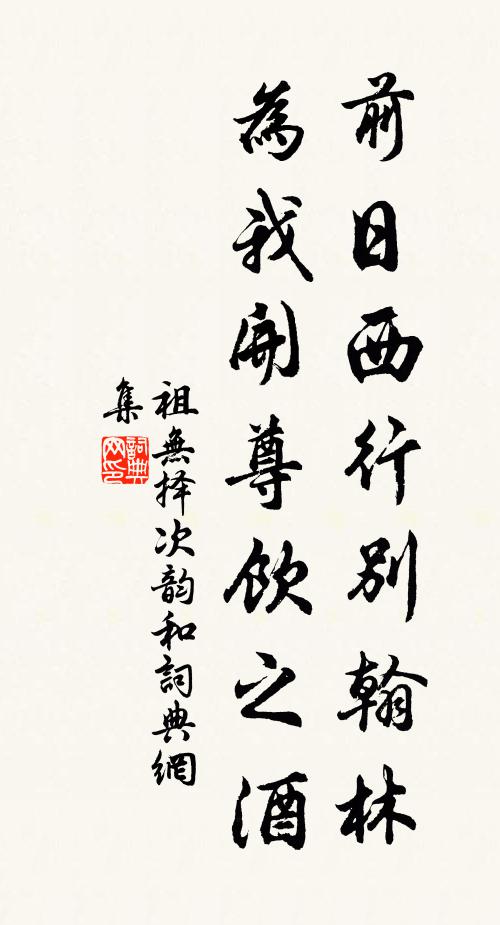 前日西行别翰林
為我開尊飲之酒
祖無择次韵和詞典網
集
詞典
网印